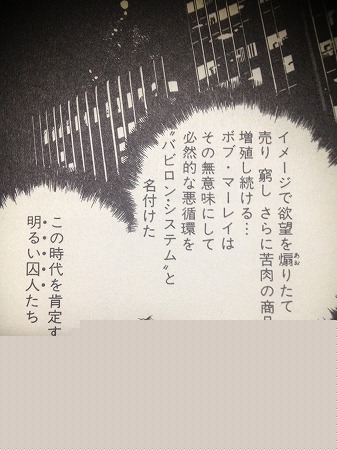 イメージで欲望を煽りたて
売り 窮し さらに苦肉の商
増殖し続ける…
ボブ・マーレイは
その無意味にして
必然的な悪循環を
〝バビロン・システム〟と
名付けた
この時代を肯定す
明るい囚人たち